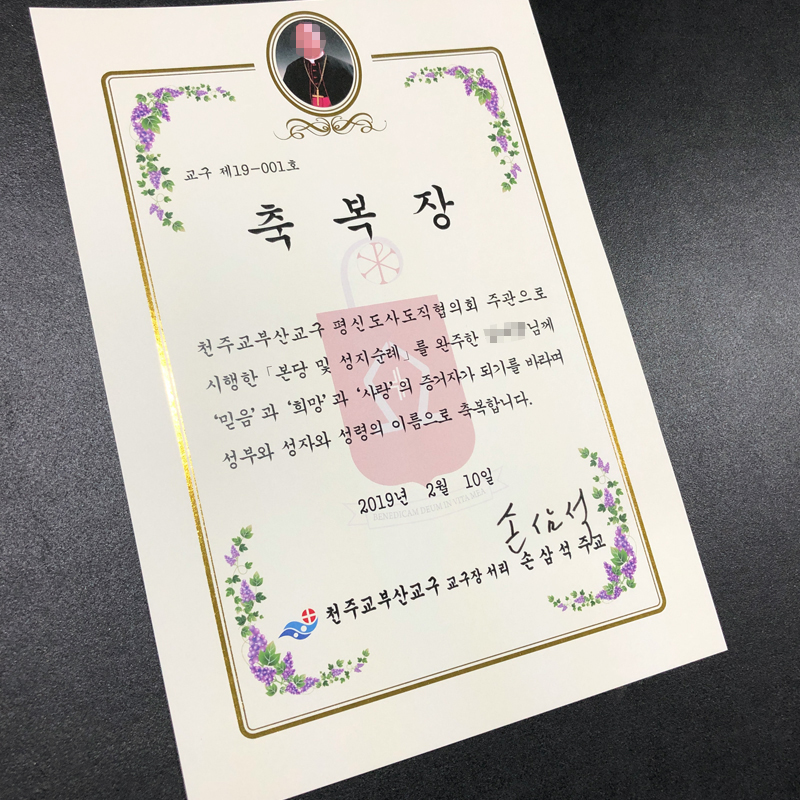 교구 제19-001호
축 복 장
천주교부산교구 평신도사도직협의회 주관으로
시행한 「본당 및 성지순례」를 완주한 님께
'믿음'과 '희망'과 '사랑'의 증거자가 되기를 바라며
성부와 성자와 성령의 이름으로 축복합니다.
2019년 2월 10일
BENEDICAM DEUM IN VITA MEA
손삼석
천주교부산교구 교구장 서리 손 삼 석 주교